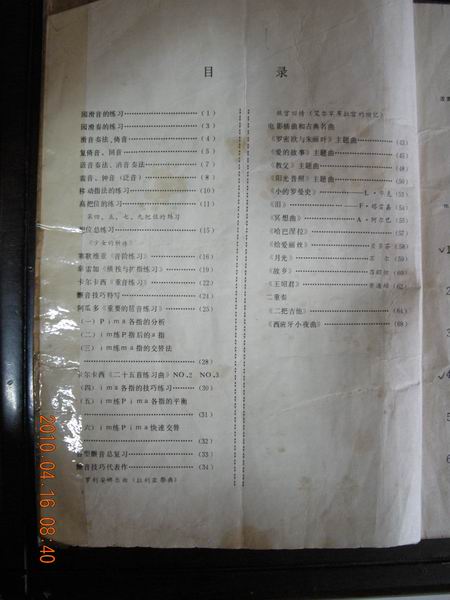 目 录
圆滑音的练习 (1)
圆滑奏的练习 (3)
滑音奏法、倚音 (4)
复倚音、回音 (5)
奏法、消音奏法 (7)
音、钟音(泛音) (8)
移动指法的练习 (10)
高把位的练习 (11)
第四、五、七、九把位的练习
把位总练习 (15)
《少女的祈祷》
塞歌维亚《音阶练习》 (16)
(横按与扩指练习) (19)
卡尔卡西《重音练习》 (22)
颤音技巧特写 (21)
阿瓜多《重要的琶音练习》 (25)
(一)Pima各指的分析
(二)im练P指后的a指
(三)im练ima指的交替法
(28)
卡尔卡西《二十五首练习曲》NO.2 NO.3
(四)ima各指的技巧练习 (30)
(五)im练Pima各指的平衡
(31)
(六)im练Pima快速交替
(32)
型颤音总复习 (33)
颤音技巧代表作 (34)
故宫回情(艾尔罕布拉宫的回忆)
电影插曲和古典名曲
《罗密欧与朱丽叶》主题曲 (43)
《爱的故事》主题曲 (45)
《教父》主题曲 (48)
《阳光普照》主题曲 (50)
《小的罗曼史》 L·华克 (51)
《泪》 F·塔雷嘉 (54)
《冥想曲》 A·阿尔巴 (55)
《哈巴涅拉》 (57)
《给爱丽丝》 贝多芬 (58)
《月光》 (59)
《故乡》 (61)
《王昭君》 (62)
二重奏
《二把吉他》 (64)
《西班牙小夜曲》 (68)
2010.04.16 08:40